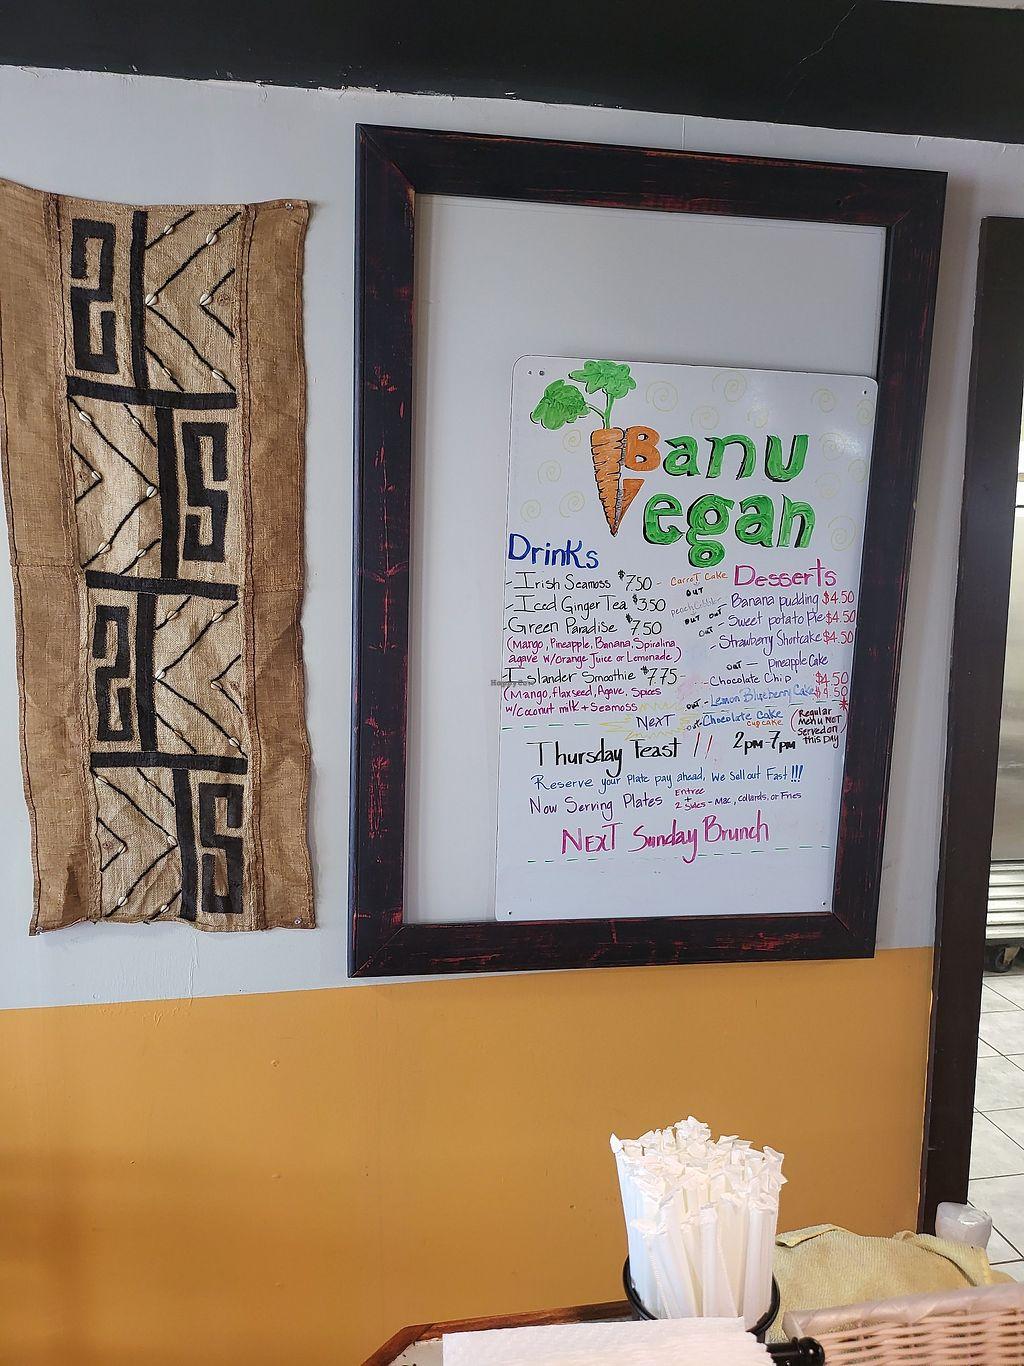 Banu
Vegan
Drinks
- Irish Seamoss $7.50 -
- Iced Ginger Tea $3.50
- Green Paradise $7.50
(Mango, Pineapple, Banana, Spirulina,
agave w/Orange Juice or Lemonade)
Islander Smoothie $7.75 -
(Mango, Flaxseed, Agave, Spices
w/Coconut milk + Seamoss
Carrot Cake
out
Peach Cobbler
out
Desserts
- Banana pudding $4.50
out
- Sweet potato Pie $4.50
out
- Strawberry Shortcake $4.50
out - Pineapple Cake
- Chocolate Chip $4.50
out - Lemon Blueberry Cake $4.50
out - Chocolate Cake
cupcake
(Regular
Menu NOT
served on
this Day)
NexT
Thursday Feast !! 2pm-7pm
Reserve your Plate pay ahead, We Sell out Fast!!!
Now Serving Plates Entree
+
2 Sides - Mac, Collards, or Fries
NexT Sunday Brunch
HappyCow